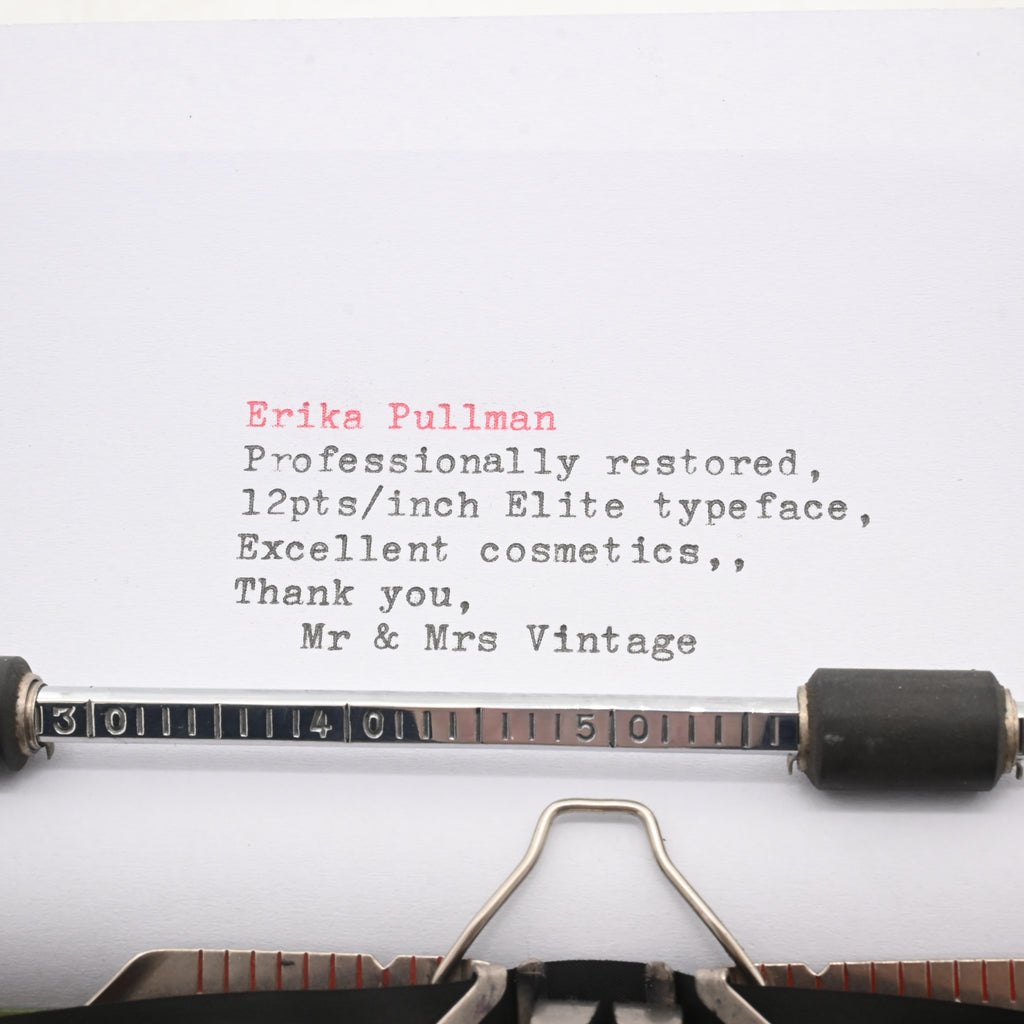 Erika Pullman
Professionally restored,
12pts/inch Elite typeface,
Excellent cosmetics,,
Thank you,
Mr & Mrs Vintage
30 40 50